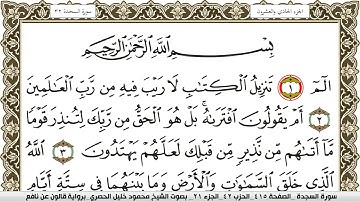 الجزء الحادي والعشرون
سورة السجدة ٣٢
بِسْمِ اللَّهِ الرَّحْمَٰنِ الرَّحِيمِ
أَلَٓمِّٓ ١ تَنزِيلُ الْكِتَٰبِ لَا رَيْبَ فِيهِ مِن رَّبِّ الْعَٰلَمِينَ
٢ أَمْ يَقُولُونَ افْتَرَىٰهُ بَلْ هُوَ الْحَقُّ مِن رَّبِّكَ لِتُنذِرَ قَوْمًا
مَّا أَتَىٰهُم مِّن نَّذِيرٍ مِّن قَبْلِكَ لَعَلَّهُمْ يَهْتَدُونَ ٣ اللَّهُ
الَّذِي خَلَقَ السَّمَٰوَٰتِ وَالْأَرْضَ وَمَا بَيْنَهُمَا فِي سِتَّةِ أَيَّامٍ
سورة السجدة _ الصفحة ٤١٥ _ الحزب ٤٢ _ الجزء ٢١ _ بصوت الشيخ محمود خليل الحصري _ برواية قالون عن نافع